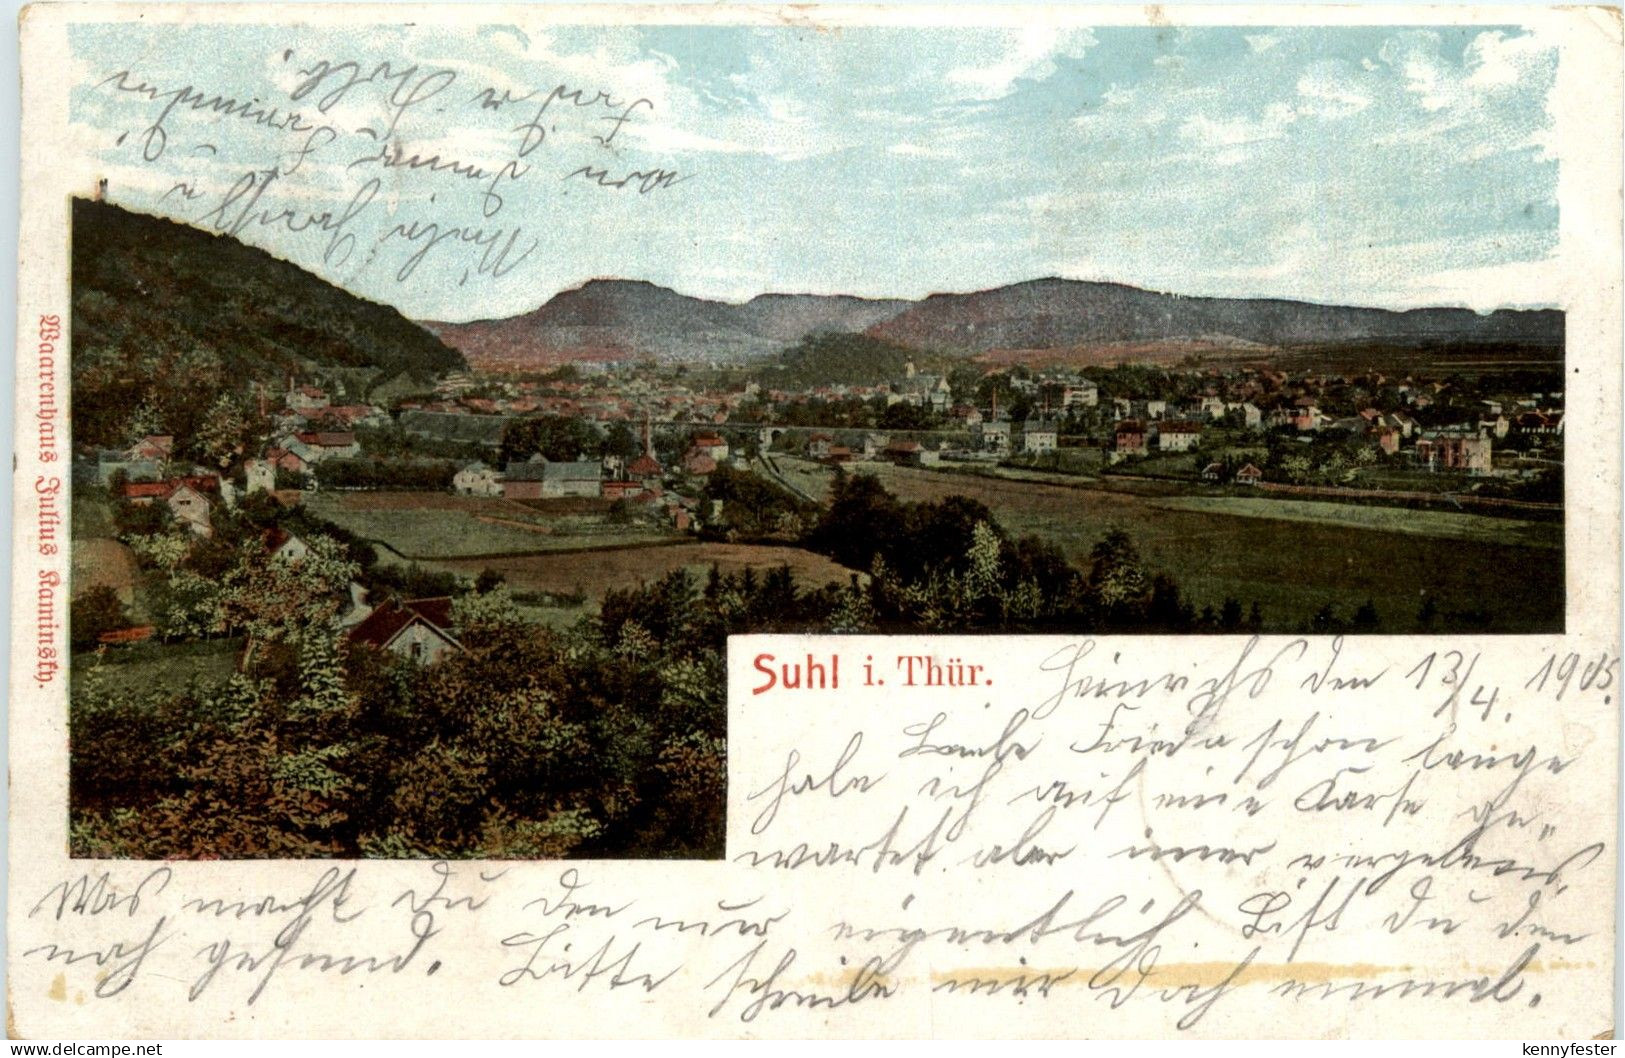 Waarenhaus Julius Kaminsky.
Suhl i. Thür.
Heinrichs den 13/4. 1905.
Liebe Frieda schon lange
habe ich auf eine Karte ge-
wartet aber imer vergebens,
Was macht Du den nur eigentlich. Bist Du den
noch gesund. Bitte schreibe mir doch einmal.
von Deiner Freundin
www.delcampe.net
kennyfester